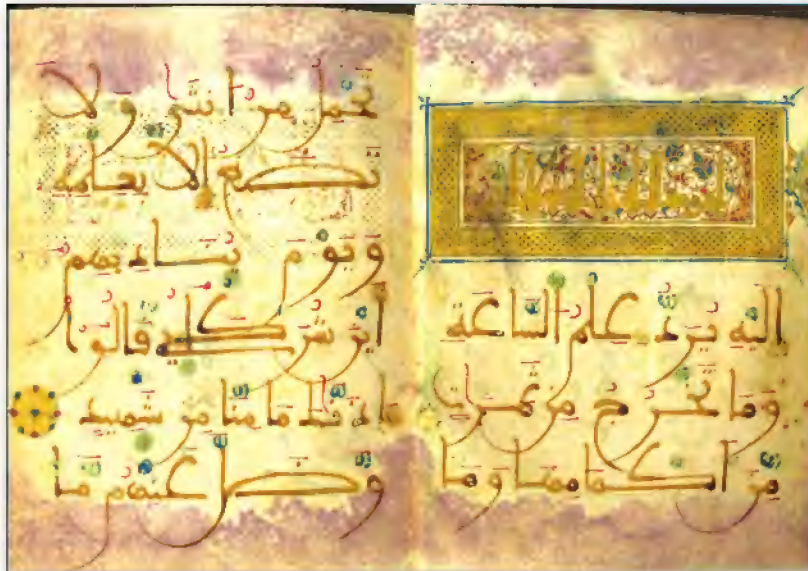 إليه يرد علم الساعة
وما تخرج من ثمرت
من أكمامها وما
تحمل من أنثى ولا
تضع إلا بعلمه
ويوم يناديهم
أين شركاءي قالوا
ءاذنك ما منا من شهيد
وضل عنهم ما